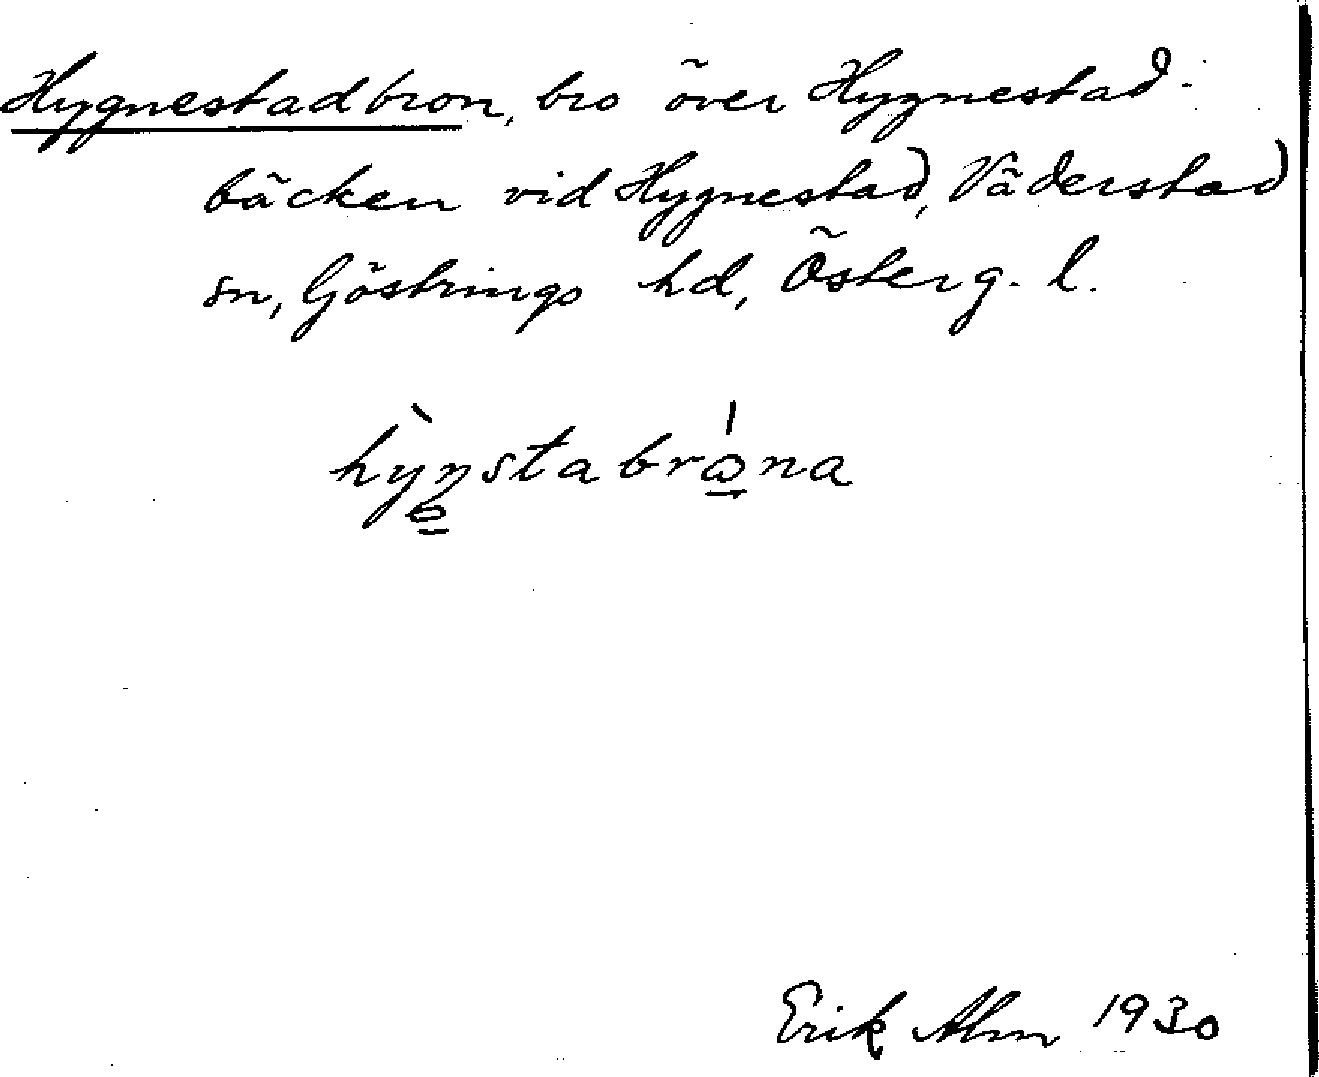 Hygnestadbron, bro över Hygnestad-
bäcken vid Hygnestad, Väderstad
sn, Göstrings hd, Österg. l.
hỳŋstabrána
Erik Alm 1930